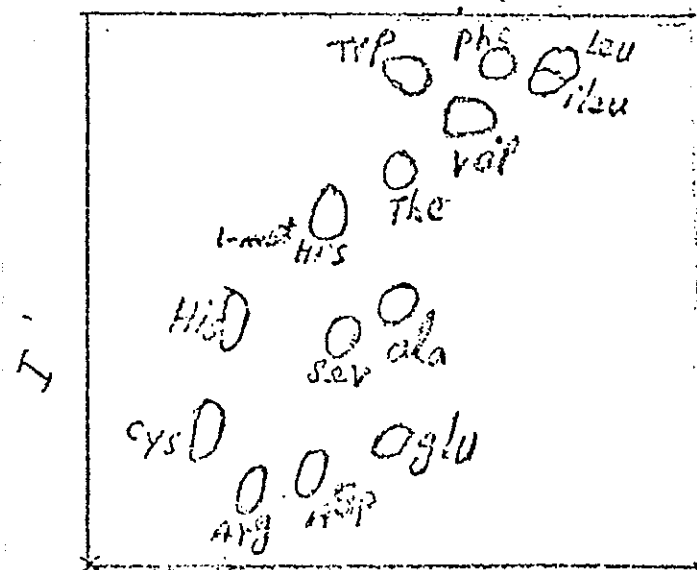 Trp
phe
Leu
ileu
val
Thr
1-met
His
His
ala
ser
cys
glu
Arg
Asp
I